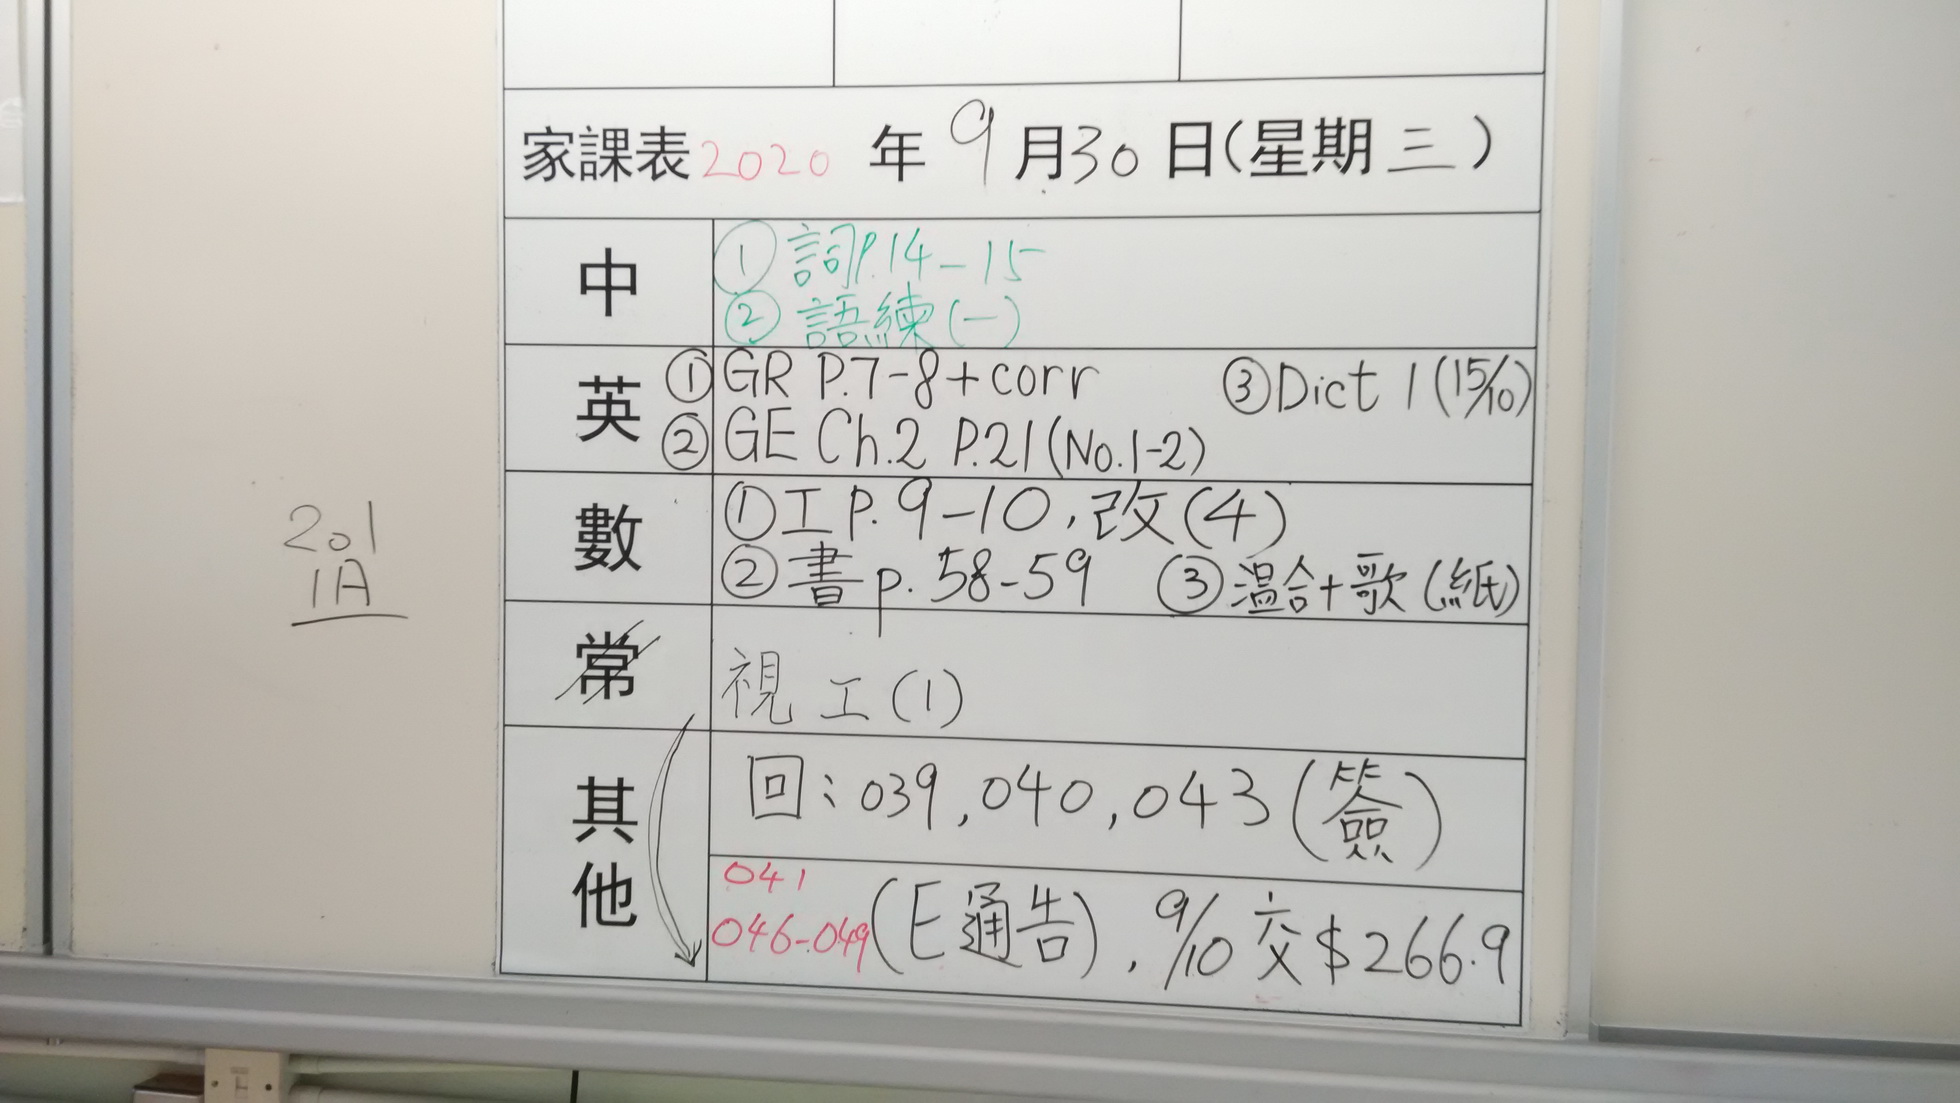 家課表2020年9月30日(星期三)
中
① 詞P.14-15
② 語練(一)
英
① GR P.7-8+corr ③Dict 1(15/10)
② GE Ch.2 P.21(No.1-2)
數
①工P.9-10,改(4)
②書p.58-59 ③溫合+歌(紙)
常
視工(1)
其他
回:039,040,043(簽)
041
046-049(E通告),9/10交$266.9
201
1A